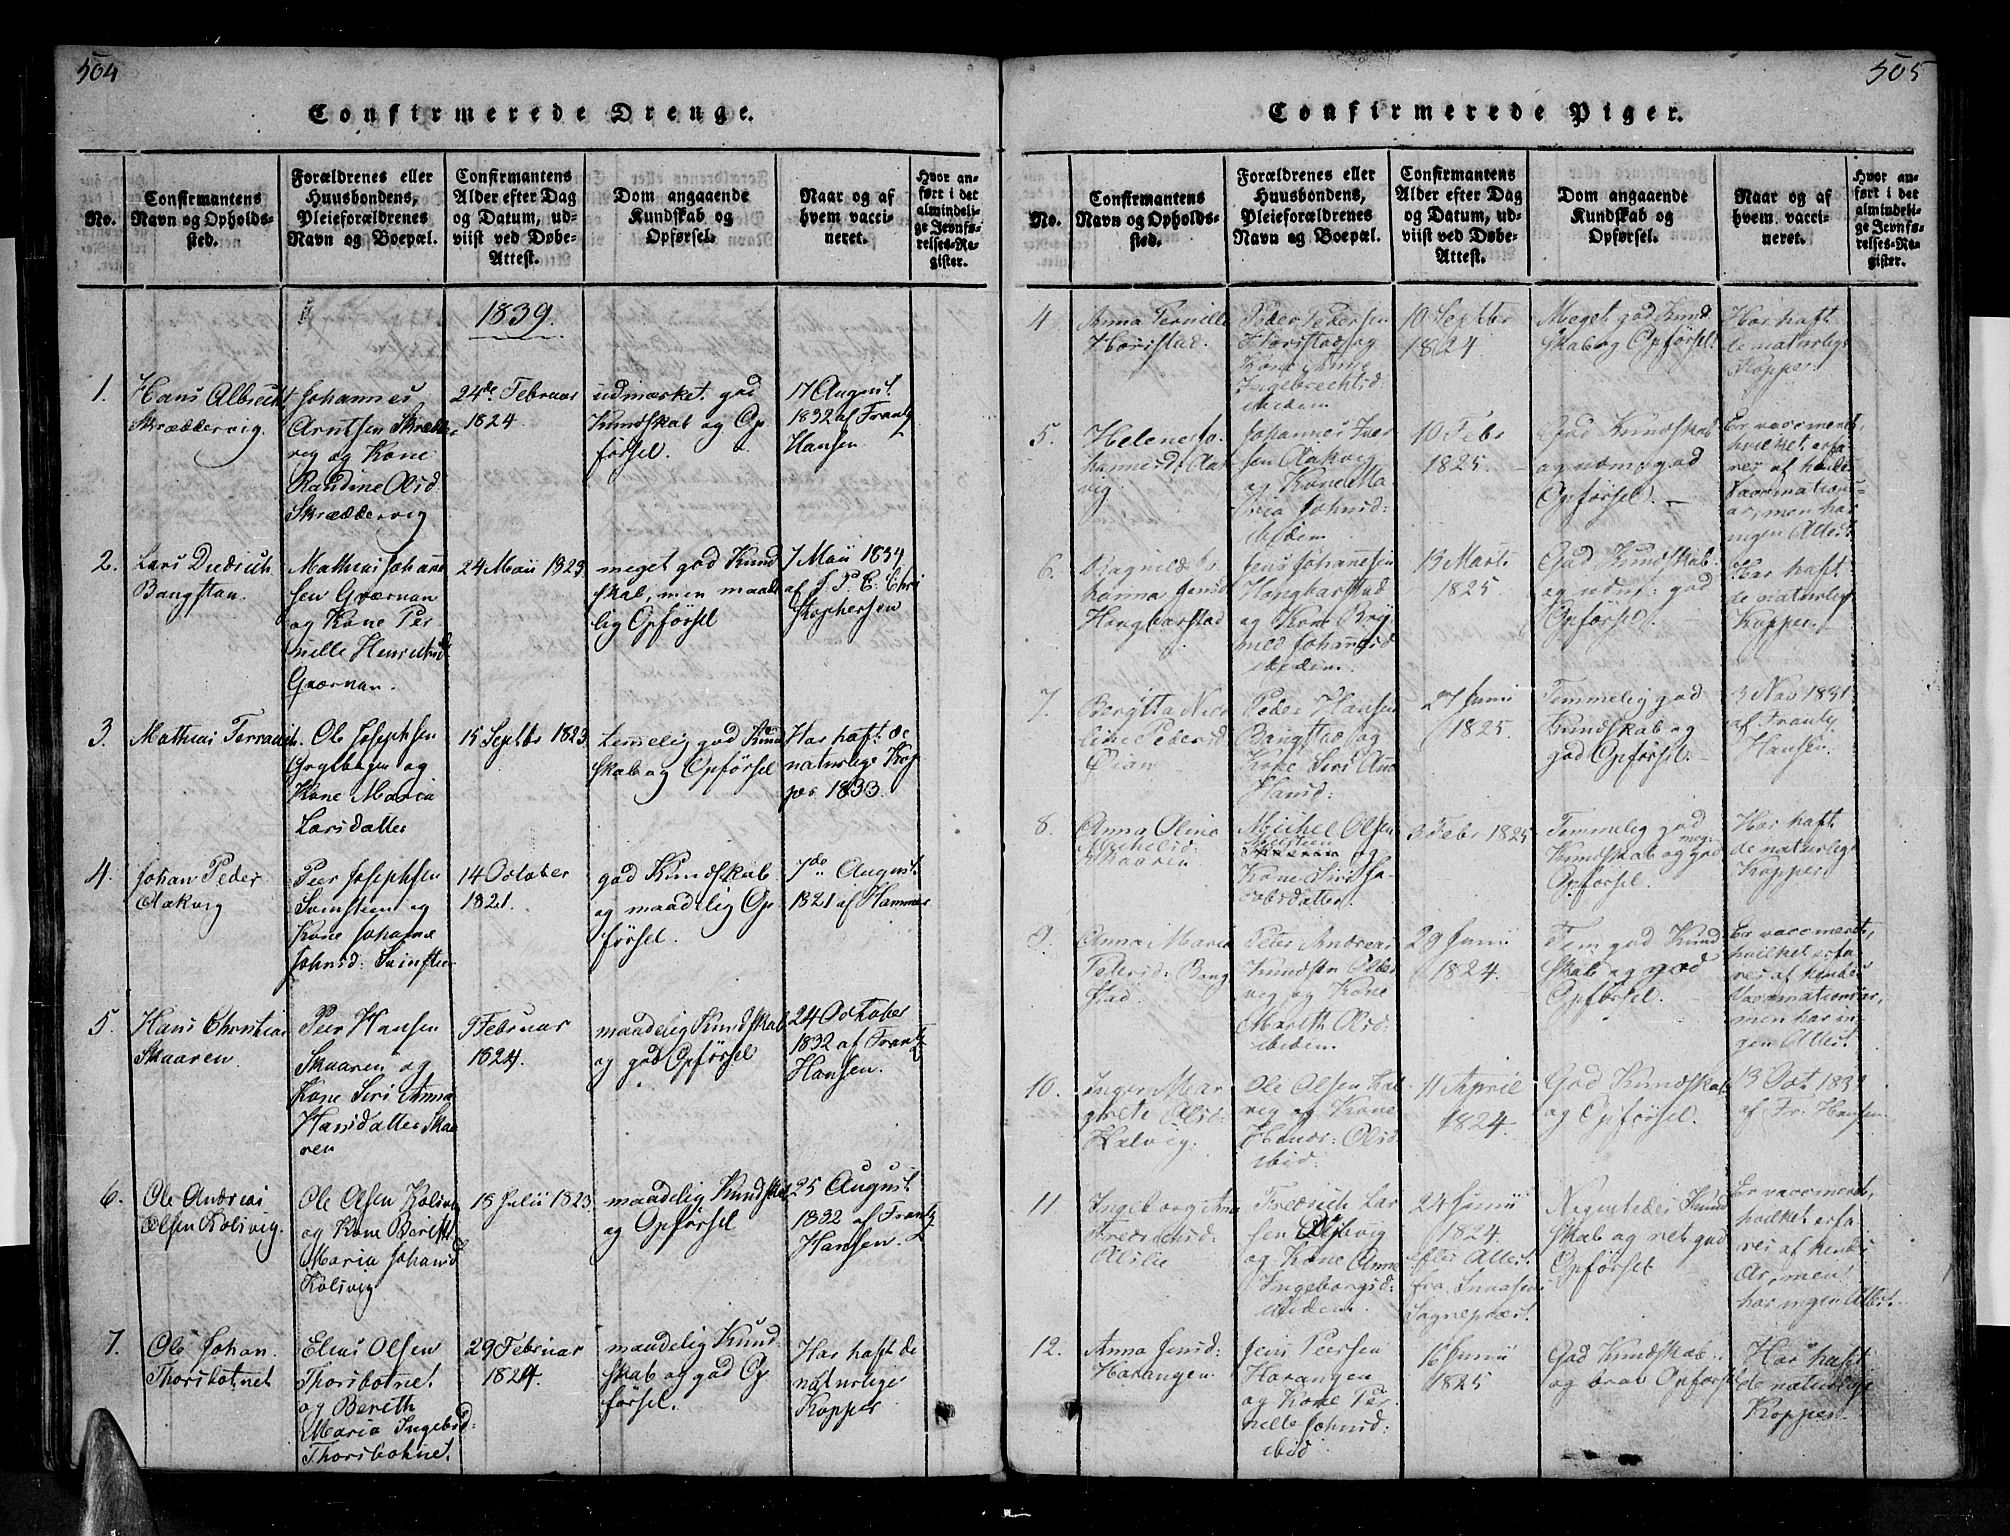 504
Confirmerede Drenge.
No.
Confirmantens
Navn og Opholds-
sted.
Forældrenes eller
Huusbondens,
Pleieforældrenes
Navn og Boepæl.
Confirmantens
Alder efter Dag
og Datum, ud-
viist ved Døbe-
Attest.
Dom angaaende
Kundskab og
Opførsel.
Naar og af
hvem vacci-
neret.
Hvor an-
ført i det
almindeli-
ge Jevnfø-
relses-Re-
gister.
1839.
1.
Hans Albrecht
Skræddervig.
Johannes
Arntsen Skrædder
vig og Kone
Randine Olsd.
Skræddervig
24de Februar
1824
udmærket god
Kundskab og Op
førsel.
17 August
1832 af Frantz
Hansen
2.
Lars
Bangstan.
Mathias Johan
sen Gværnan
og Kone Per
nille
Gværnan.
24 Maii 1823
meget god Kund
skab, men maade
lig Opførsel
7 Maii 1834
af
3.
Mathias
Ole Josephsen
og
Kone Maria
Larsdatter
15 Septbr 1823
temmelig god Kund
skab og Opførsel
Har haft de
naturlige Kop
per 1833.
4.
Johan Peder
Aakvig
Peer Josephsen
og
Kone
Johnsd:
14 October
1821.
god Kundskab
og maadelig Op
førsel.
7de August
1821 af Hammer
5.
Hans Christian
Skaaren
Peer Hansen
Skaaren og
Kone Siri Anna
Hansdatter Skaa
ren
9 Februar
1824.
maadelig Kundskab
og god Opførsel
24 October
1832 af Frantz
Hansen.
6.
Ole Andreas
Olsen Kolsvig.
Ole Olsen Kolsvig
og Kone Bereth
Maria Johansd
Kolsvig
18 Julii 1823
maadelig Kundskab
og Opførsel
25 August
1832 af Frantz
Hansen.
7.
Ole Johan
Thorsbotnet
Elias Olsen
Thorsbotnet
og Bereth
Maria Ingebrd:
Thorsbotnet.
29 Februar
1824.
maadelig Kund
skab og god Op
førsel.
Har haft de
naturlige
Kopper
505
Confirmerede Piger.
No.
Confirmantens
Navn og Opholds-
sted.
Forældrenes eller
Huusbondens,
Pleieforældrenes
Navn og Boepæl.
Confirmantens
Alder efter Dag
og Datum, ud-
viist ved Døbe-
Attest.
Dom angaaende
Kundskab og
Opførsel.
Naar og af
hvem vacci-
neret.
Hvor an-
ført i det
almindeli-
ge Jevnfø-
relses-Re-
gister.
4
Anna Pernille
Horstad.
Peder Pedersen
Horstad og
Kone Anne
Ingebrechtsd
ibidem
10 Septbr
1824
Meget god Kund
skab og Opførsel.
Har haft
de naturlige
Kopper
5.
Helene Jo
hannesd. Aak
vig
Johannes Iver
sen Aakvig
og Kone Ma
ria Johnsd:
ibidem
10 Febr
1825.
God Kundskab
og god
Opførsel.
Er vaccineret,
hvilket erfa
res af hendes
Vaccinations-
ar, men har
ingen Attest
6.
hanna Jensd
Haugbarstad
Jens Johansen
Haugbarstad
og Kone
Johansd
ibidem.
13 Marts
1825.
God Kundskab
og god
Opførsel.
Har haft
de naturlige
Kopper
7.
Bergitta Nico
line Pedersd
Peder Hansen
Bangstad og
Kone Siri Ann
Hansd:
27 Junii
1825.
Temmelig god
Kundskab og
god Opførsel.
3 Nov 1831
af Frantz
Hansen.
8.
Anna Olina
Michelsd:
Skaaren
Michel Olsen
og
Kone Siri Ja
cobsdatter
3 Febr 1825
Temmelig god
Kundskab og meg: god
Opførsel.
Har haft
de naturlige
Kopper
9.
Anna Maria
Petersd: Bang
stad
Peter Andreas
Knudsen
vig og Kone
Mareth Olsd
ibidem
29 Junii
1824.
Tem god Kund
skab og god
Opførsel.
Er vaccineret,
hvilket erfa
res af hendes
Vaccinationsar,
men har in
gen Attest.
10.
Inger Mar
grete Olsd:
Halvig
Ole Olsen Hal
vig og Kone
Olsd
ibid:
11 April
1824.
God Kundskab
og Opførsel.
13 Oct
af Fr: Hansen
11.
Ingeborg Anna
Fredriksd:
Fredrich Lar
sen
og Kone Anne
Ingeborgsd:
ibidem.
24 Junii
1824
efter Attest
fra Snaasens
Sognepræst
Kund
skab og ret god
Opførsel
Er vaccineret,
hvilket erfa
res af hendes
Ar, men
har ingen Attest.
12.
Anna Jensd:
Harangen
Jens Peersen
Harangen
og Kone Per
nille Johnsd
ibid
16 Junii
1825
God Kundskab
og brav Opførsel
Har haft
de naturlige
Kopper